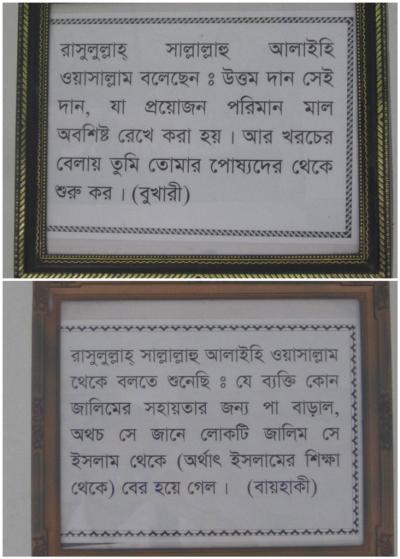 রাসুলুল্লাহ্ সাল্লাল্লাহু আলাইহি
ওয়াসাল্লাম বলেছেন ঃ উত্তম দান সেই
দান, যা প্রয়োজন পরিমান মাল
অবশিষ্ট রেখে করা হয় । আর খরচের
বেলায় তুমি তোমার পোষ্যদের থেকে
শুরু কর । (বুখারী)
রাসুলুল্লাহ্ সাল্লাল্লাহু আলাইহি ওয়াসাল্লাম
থেকে বলতে শুনেছি ঃ যে ব্যক্তি কোন
জালিমের সহায়তার জন্য পা বাড়াল,
অথচ সে জানে লোকটি জালিম সে
ইসলাম থেকে (অর্থাৎ ইসলামের শিক্ষা
থেকে) বের হয়ে গেল । (বায়হাকী)